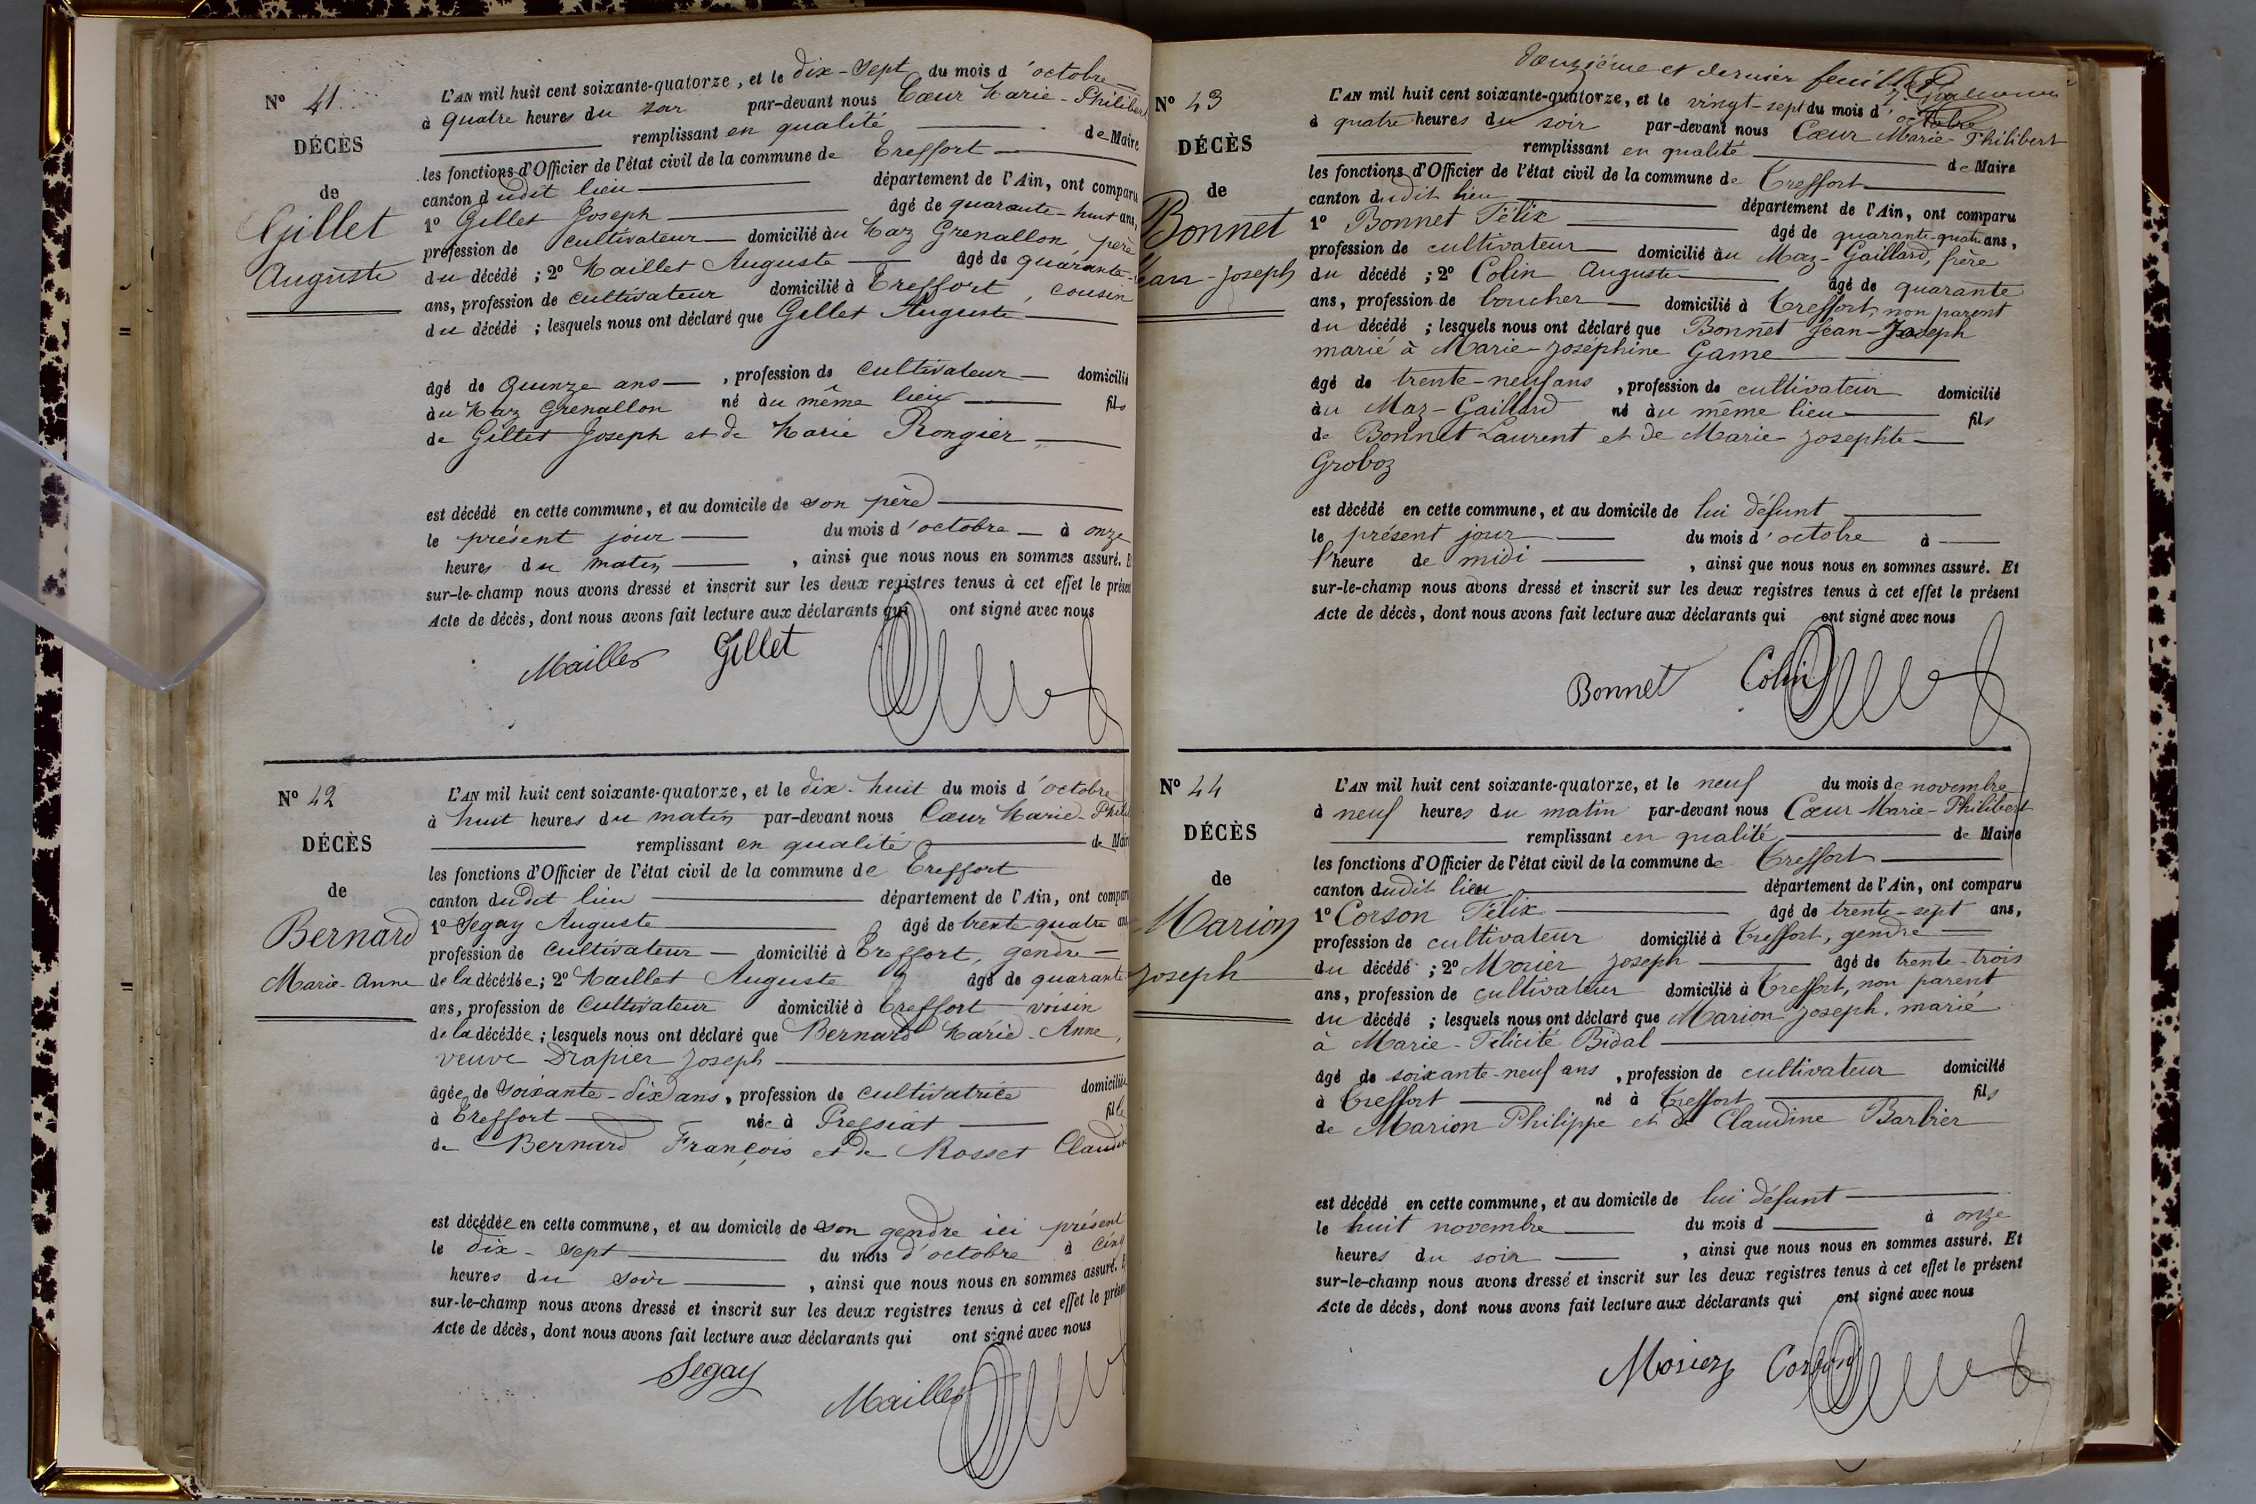 N° 41
DÉCÈS
de
Gillet
Auguste
L'AN mil huit cent soixante-quatorze, et le dix-sept du mois d'octobre
à quatre heures du soir par-devant nous Cœur Marie-Philibert
remplissant en qualité de Maire
les fonctions d'Officier de l'état civil de la commune de Treffort
canton dudit lieu département de l'Ain, ont comparu
1° Gillet Joseph âgé de quarante-huit ans,
profession de cultivateur domicilié au Maz Grenallon, père
du décédé ; 2° Maillet Auguste âgé de quarante
ans, profession de cultivateur domicilié à Treffort, cousin
du décédé ; lesquels nous ont déclaré que Gillet Auguste
âgé de quinze ans, profession de cultivateur domicilié
au Maz Grenallon né au même lieu fils
de Gillet Joseph et de Marie Rongier,
est décédé en cette commune, et au domicile de son père
le présent jour du mois d'octobre à onze
heures du matin, ainsi que nous nous en sommes assuré. E
sur-le-champ nous avons dressé et inscrit sur les deux registres tenus à cet effet le présen
Acte de décès, dont nous avons fait lecture aux déclarants qui ont signé avec nous
Maillet Gillet
N° 42
DÉCÈS
de
Bernard
Marie-Anne
L'AN mil huit cent soixante-quatorze, et le dix-huit du mois d'octobre
à huit heures du matin par-devant nous Cœur Marie-Phili
remplissant en qualité de Mair
les fonctions d'Officier de l'état civil de la commune de Treffort
canton dudit lieu département de l'Ain, ont compar
1° Segay Auguste âgé de trente-quatre ans
profession de cultivateur domicilié à Treffort, gendre
de la décédée ; 2° Maillet Auguste âgé de quarante
ans, profession de cultivateur domicilié à Treffort voisin
de la décédée ; lesquels nous ont déclaré que Bernard Marie-Anne,
veuve Drapier Joseph
âgée de soixante-dix ans, profession de cultivatrice domiciliée
à Treffort née à Pressiat fille
de Bernard François et de Rosset Claudin
est décédée en cette commune, et au domicile de son gendre ici présent
le dix-sept du mois d'octobre à cinq
heures du soir, ainsi que nous nous en sommes assuré. E
sur-le-champ nous avons dressé et inscrit sur les deux registres tenus à cet effet le présen
Acte de décès, dont nous avons fait lecture aux déclarants qui ont signé avec nous
Segay
Maillet
Douzième et dernier feuillet
N° 43
DÉCÈS
de
Bonnet
Jean-Joseph
L'AN mil huit cent soixante-quatorze, et le vingt-sept du mois d'octobre
à quatre heures du soir par-devant nous Cœur Marie-Philibert
remplissant en qualité de Maire
les fonctions d'Officier de l'état civil de la commune de Treffort
canton dudit lieu département de l'Ain, ont comparu
1° Bonnet Félix âgé de quarante-quatre ans,
profession de cultivateur domicilié au Maz-Gaillard, frère
du décédé ; 2° Colin Auguste âgé de quarante
ans, profession de boucher domicilié à Treffort, non parent
du décédé ; lesquels nous ont déclaré que Bonnet Jean-Joseph
marié à Marie-Joséphine Game
âgé de trente-neuf ans, profession de cultivateur domicilié
au Maz-Gaillard né au même lieu fils
de Bonnet Laurent et de Marie-Josephte
Groboz
est décédé en cette commune, et au domicile de lui défunt
le présent jour du mois d'octobre à
l'heure de midi, ainsi que nous nous en sommes assuré. Et
sur-le-champ nous avons dressé et inscrit sur les deux registres tenus à cet effet le présent
Acte de décès, dont nous avons fait lecture aux déclarants qui ont signé avec nous
Bonnet Colin
N° 44
DÉCÈS
de
Marion
Joseph
L'AN mil huit cent soixante-quatorze, et le neuf du mois de novembre
à neuf heures du matin par-devant nous Cœur Marie-Philibert
remplissant en qualité de Maire
les fonctions d'Officier de l'état civil de la commune de Treffort
canton dudit lieu département de l'Ain, ont comparu
1° Corson Félix âgé de trente-sept ans,
profession de cultivateur domicilié à Treffort, gendre
du décédé ; 2° Morier Joseph âgé de trente-trois
ans, profession de cultivateur domicilié à Treffort, non parent
du décédé ; lesquels nous ont déclaré que Marion Joseph, marié
à Marie-Félicité Bidal
âgé de soixante-neuf ans, profession de cultivateur domicilié
à Treffort né à Treffort fils
de Marion Philippe et de Claudine Barbier
est décédé en cette commune, et au domicile de lui défunt
le huit novembre du mois d à onze
heures du soir, ainsi que nous nous en sommes assuré. Et
sur-le-champ nous avons dressé et inscrit sur les deux registres tenus à cet effet le présent
Acte de décès, dont nous avons fait lecture aux déclarants qui ont signé avec nous
Morier Corson